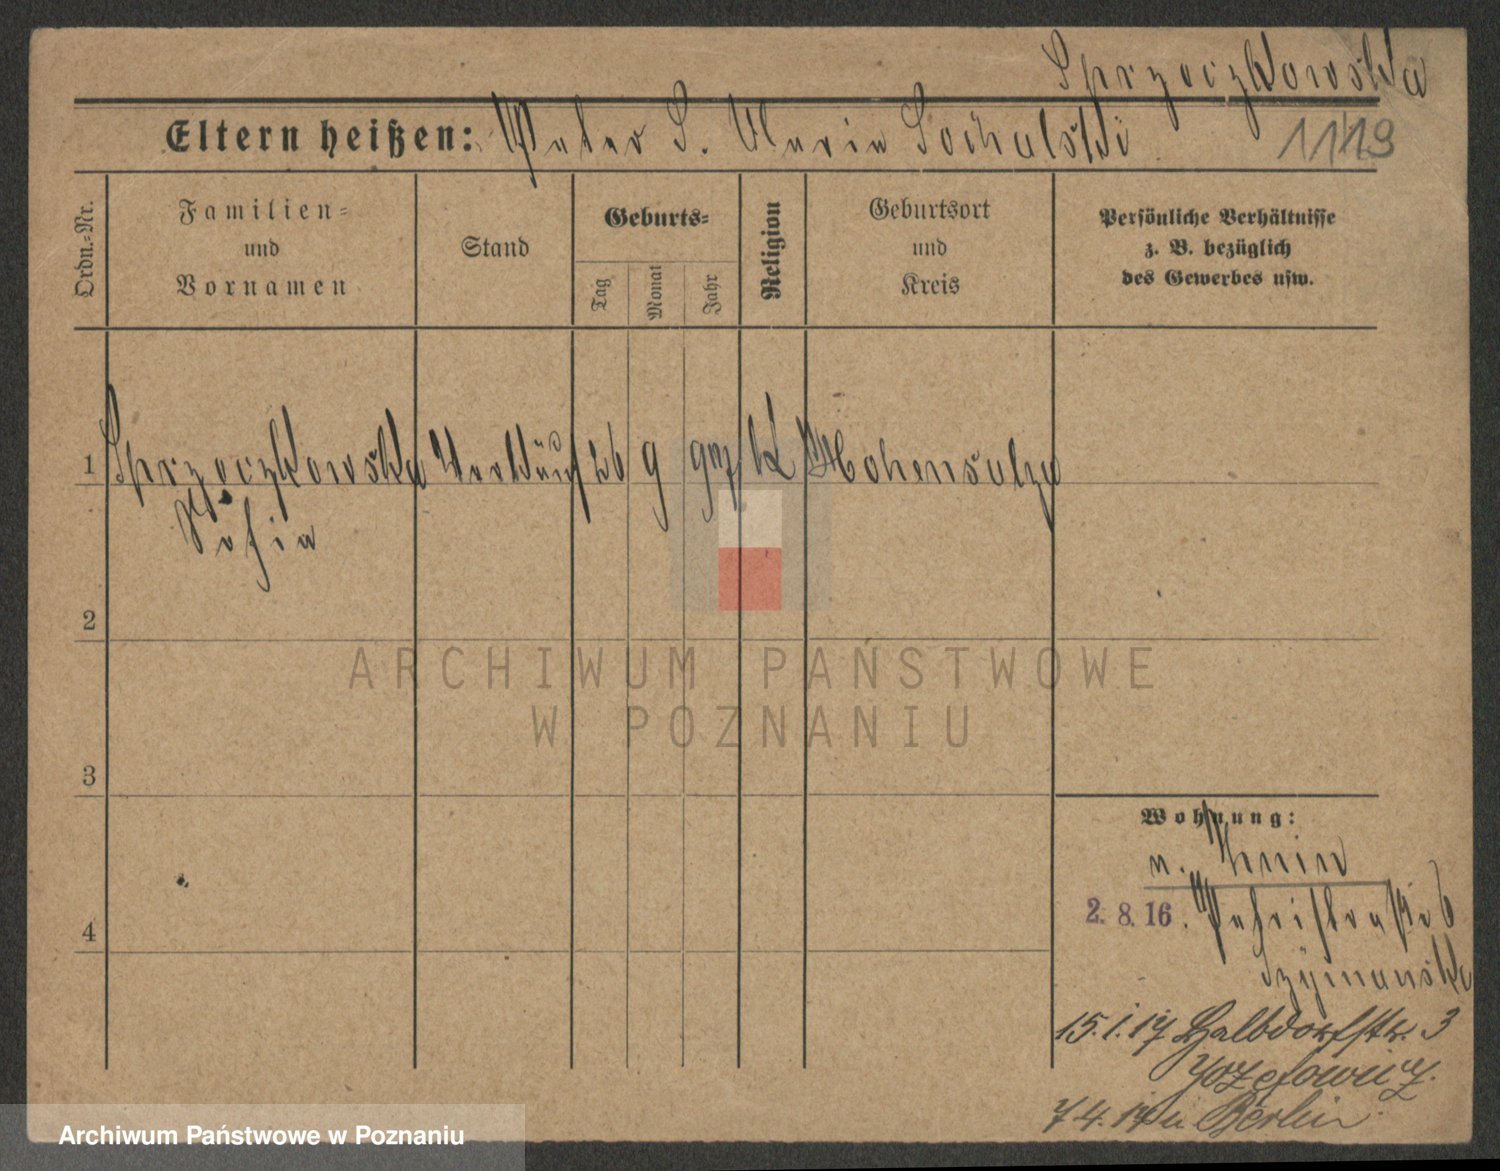 Sprzoczkowska
Eltern heißen: Peter S. Maria Sochalski
1119
Ordn.-Nr.
Familien-
und
Vornamen
Stand
Geburts-
Tag
Monat
Jahr
Religion
Geburtsort
und
Kreis
Persönliche Verhältnisse
z. B. bezüglich
des Gewerbes usw.
1 Sprzoczkowska 26 9 K Hohensalza
Sofia
2
3
4
Wohnung:
n. Znin
2. 8. 16. 6
Szymanska
15.1.17 Halbdorfstr. 3
Jozefowicz.
7 4. 17 n. Berlin
ARCHIWUM PAŃSTWOWE
W POZNANIU
Archiwum Państwowe w Poznaniu